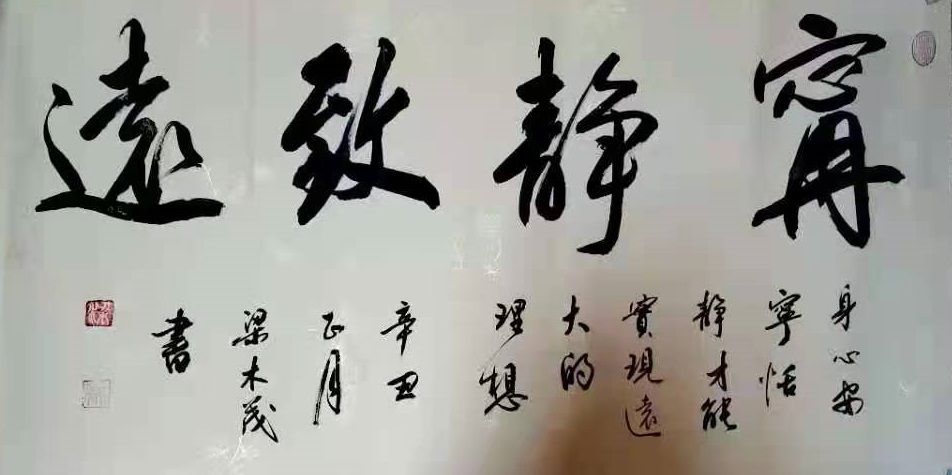 甯静致遠
身心安
寧恬
静才能
實現遠
大的
理想
辛丑
正月
梁木茂
書